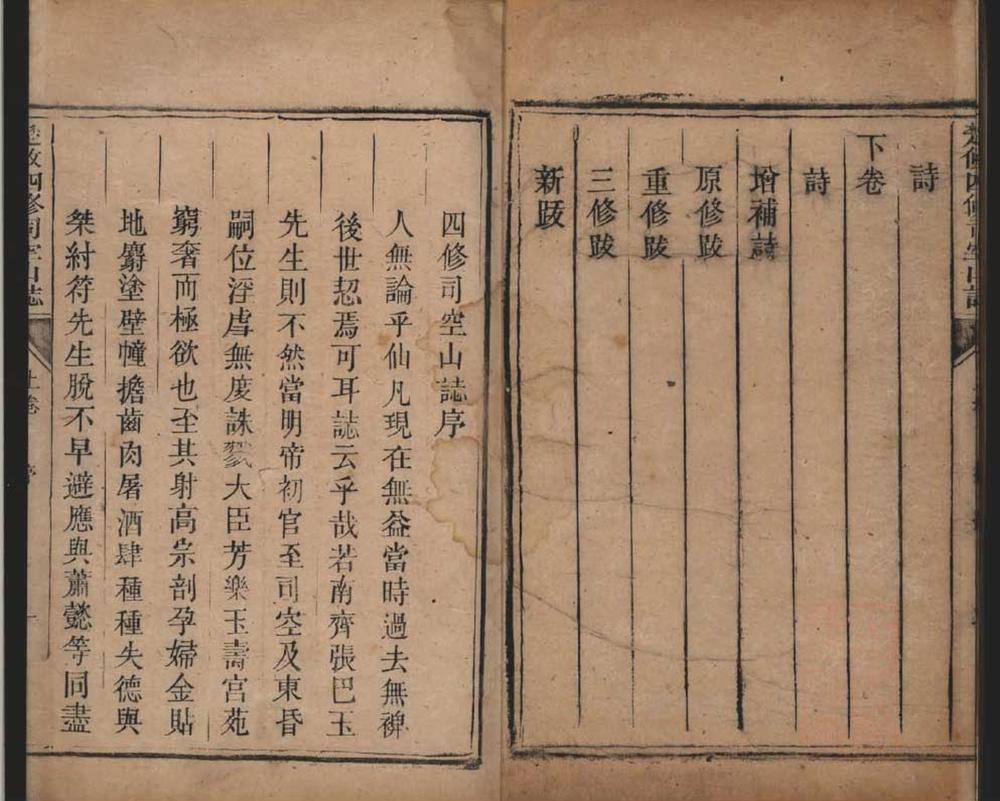 詩
下卷
詩
增補詩
原修跋
重修跋
三修跋
新跋
四修司空山誌序
人無論乎仙凡現在無益當時過去無裨
後世恝焉可耳誌云乎哉若南齊張巴玉
先生則不然當明帝初官至司空及東昏
嗣位淫虐無度誅戮大臣芳樂玉壽宮苑
窮奢而極欲也至其射高宗剖孕婦金貼
地麝塗壁幢擔齒肉屠酒肆種種失德與
桀紂符先生脫不早避應與蕭懿等同盡
四修司空山誌
上卷